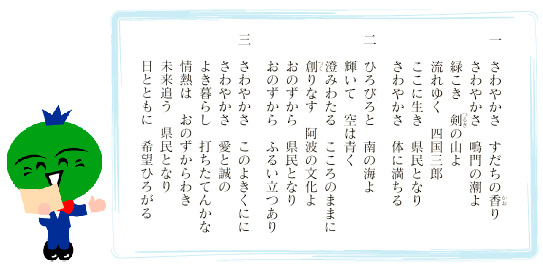 一
さわやかさ すだちの香り
さわやかさ 鳴門の潮よ
緑こき 剣の山よ
流れゆく 四国三郎
ここに生き 県民となり
さわやかさ 体に満ちる
二
ひろびろと 南の海よ
輝いて 空は青く
澄みわたる こころのままに
創りなす 阿波の文化よ
おのずから 県民となり
おのずから ふるい立つあり
三
さわやかさ このよきくにに
さわやかさ 愛と誠の
よき暮らし 打ちたてんかな
情熱は おのずからわき
未来追う 県民となり
日とともに 希望ひろがる